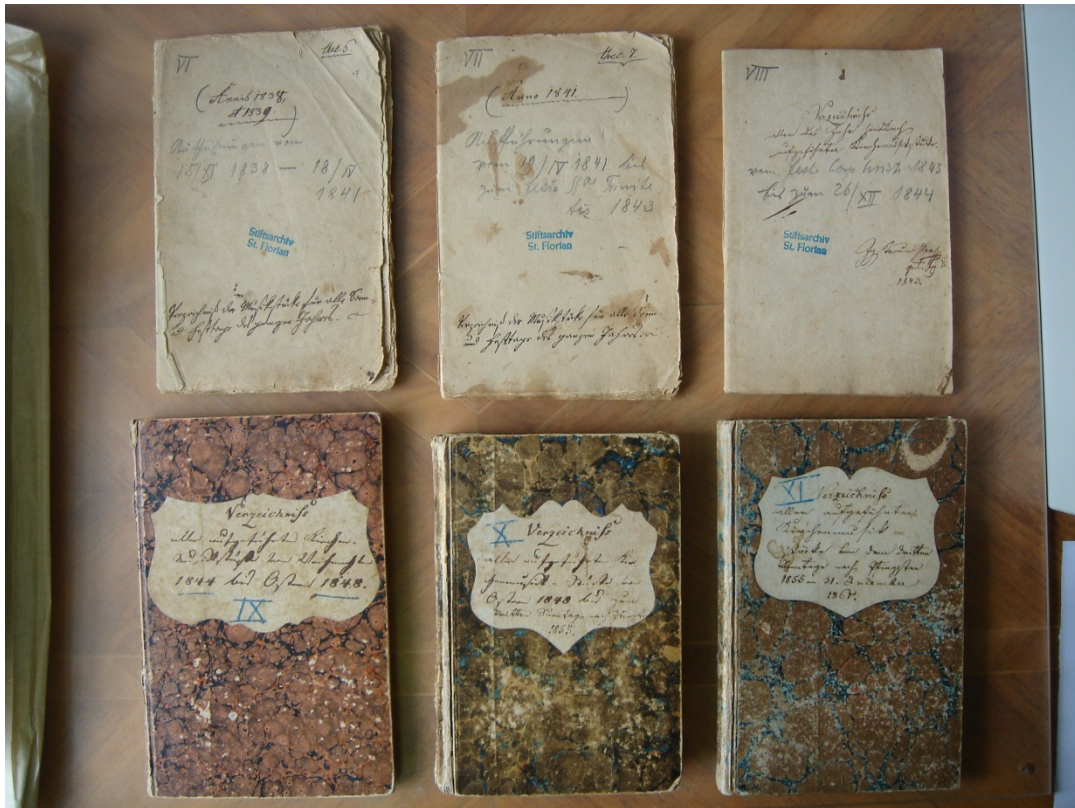 VI
thec. 5.
(Annis 1838,
et 1839.)
Aufführungen vom
15/XI 1838 — 18/IV
1841
Stiftsarchiv
St. Florian
Verzeichniß der Musikstücke für alle Sonn-
u. Festtage des ganzen Jahres.
VII
thec. 7.
(Anno 1841.)
Aufführungen
vom 19/IV 1841 bis
zum
1843
Stiftsarchiv
St. Florian
Verzeichniß der Musikstücke für alle Sonn-
und Festtage des ganzen Jahres
VIII
Verzeichniß
aller das Jahr hindurch
aufgeführten Kirchenmusikstücke.
vom Feste Corp. Christi 1843
bis zum 26/XII 1844
Stiftsarchiv
St. Florian
1843.
Verzeichniß
aller aufgeführten Kirchen-
von Weihnacht
1844 bis Ostern 1848.
IX
X
Verzeichniß
aller aufgeführten Kir-
chenmusik-Stücke von
Ostern 1848 bis zum
dritten Sonntage nach
XI
Verzeichniß
aller aufgeführten
Kirchenmusik-
Stücke von dem dritten
Sonntage nach Pfingsten
1855 – 31. Dezember